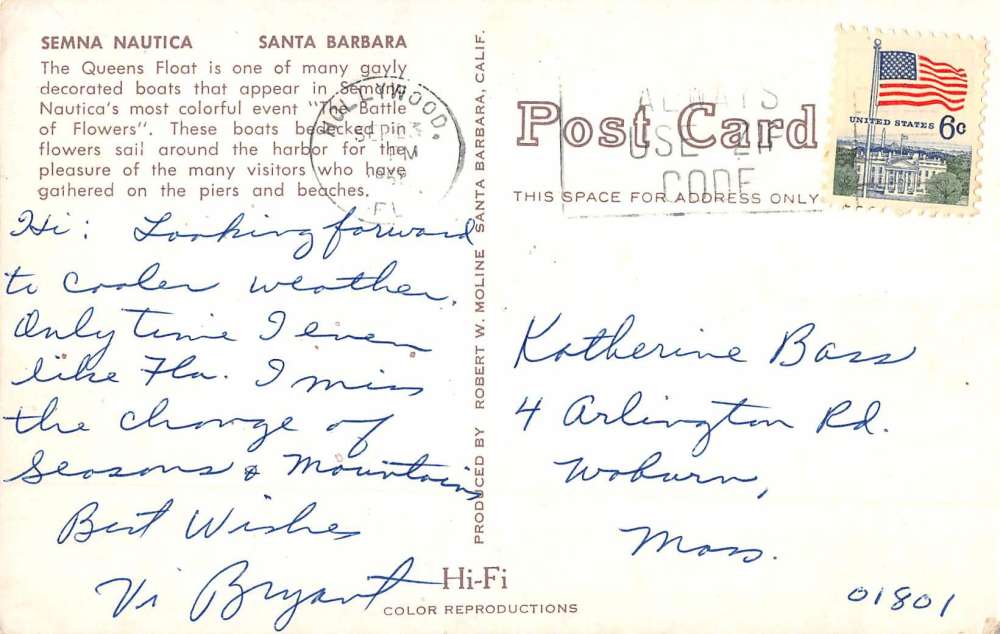 SEMNA NAUTICA SANTA BARBARA
The Queens Float is one of many gayly
decorated boats that appear in Semana
Nautica's most colorful event "The Battle
of Flowers". These boats bedecked in
flowers sail around the harbor for the
pleasure of the many visitors who have
gathered on the piers and beaches.
Hi: Looking forward
to cooler weather.
Only time I even
like Fla. I miss
the change of
Seasons & Mountains
Best Wishes
Vi Bryant
PRODUCED BY ROBERT W. MOLINE SANTA BARBARA, CALIF.
Hi-Fi
COLOR REPRODUCTIONS
HOLLYWOOD,
PM
FL
ALWAYS
USE ZIP
CODE
Post Card
THIS SPACE FOR ADDRESS ONLY
UNITED STATES 6c
Katherine Bass
4 Arlington Rd.
Woburn,
Mass.
01801